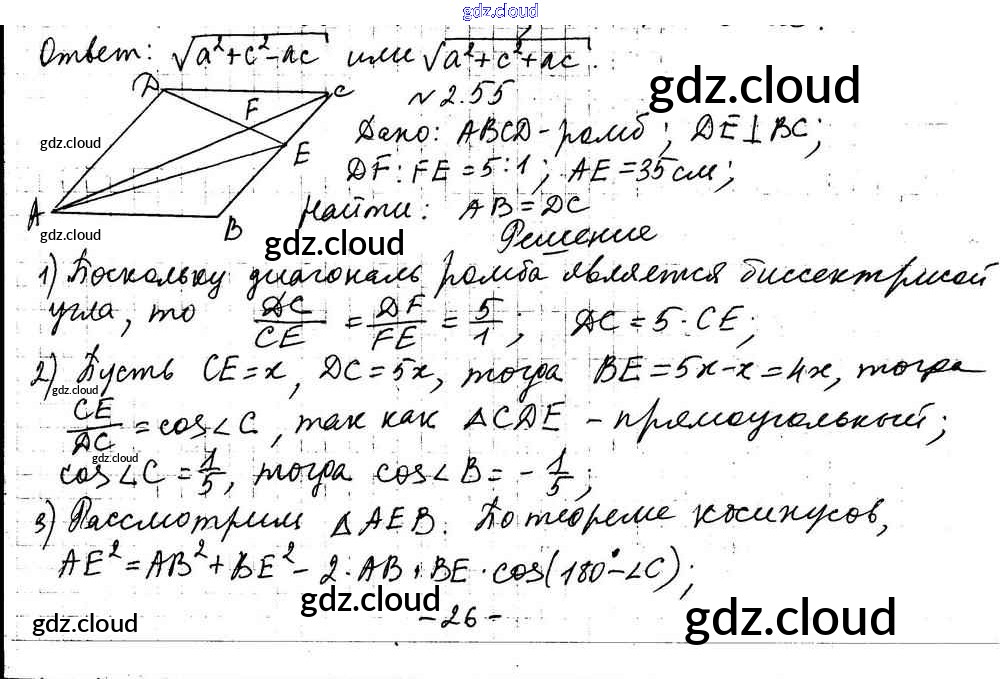 gdz.cloud
Ответ: √a²+c²-ac или √a²+c²+ac.
D C №2.55
F gdz.cloud
Дано: ABCD - ромб; DE⊥BC;
gdz.cloud E
DF:FE=5:1; AE=35см;
A B Найти: AB=DC
gdz.cloud gdz.cloud Решение
1) Поскольку диагональ ромба является биссектрисой
угла, то DC/CE = DF/FE = 5/1; DC=5·CE;
gdz.cloud
2) Пусть CE=x, DC=5x, тогда BE=5x-x=4x, тогда
gdz.cloud
CE/DC = cos∠C, так как △CDE - прямоугольный;
gdz.cloud
cos∠C = 1/5, тогда cos∠B = -1/5;
3) Рассмотрим △AEB. По теореме косинусов,
AE²=AB²+BE²-2·AB·BE·cos(180°-∠C);
gdz.cloud gdz.cloud -26- gdz.cloud